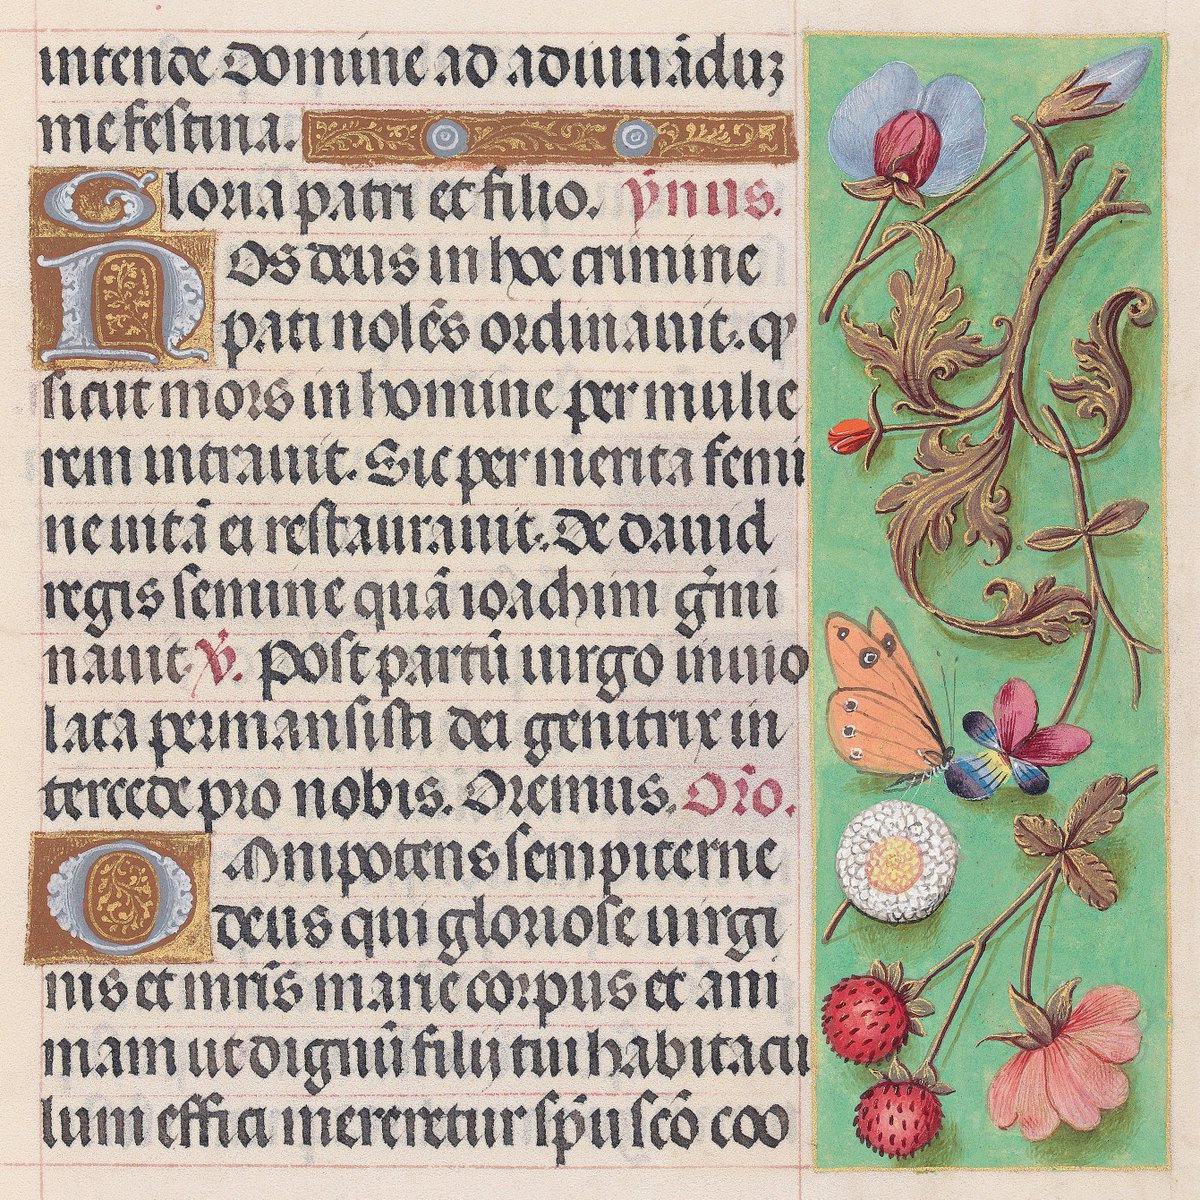 intende Domine ad adiuuāduʒ
me festina.
Gloria patri et filio. ẏnus.
Nos deus in hoc crimine
pati nolēs ordinauit. qͥ
sicut mors in homine per mulie
rem intrauit. Sic per merita femi
ne uitā ei restaurauit. De dauid
regis semine quā ioachim ḡmi
nauit. v̄. Post partū uirgo inuio
lata permansisti dei genitrix in
tercede pro nobis. Oremus. Or̄o.
Omnipotens sempiterne
deus qui gloriose uirgi
nis et mr̄is marie corpus et ani
mam ut dignū filij tui habitacu
lum effici mereretur sp̄u scō coo